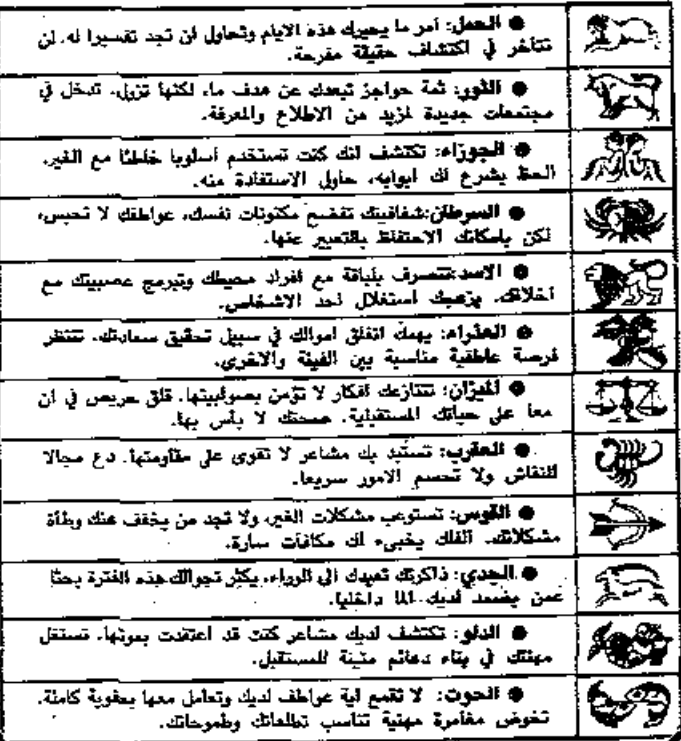 ● الحمل: أمر ما يحيرك هذه الايام وتحاول أن تجد تفسيرا له. لن
تتأخر في اكتشاف حقيقة مفرحة.
● الثور: ثمة حواجز تبعدك عن هدف ما، لكنها تزول. تدخل في
مجتمعات جديدة لمزيد من الاطلاع والمعرفة.
● الجوزاء: تكتشف انك كنت تستخدم أسلوبا خاطئا مع الغير.
الحظ يشرع لك ابوابه، حاول الاستفادة منه.
● السرطان: شفافيتك تفضح مكنونات نفسك، عواطفك لا تحبس،
لكن بامكانك الاحتفاظ بالتعبير عنها.
● الاسد: تتصرف بلباقة مع افراد محيطك وتبرمج عصبيتك مع
أخلاقك. يزعجك استغلال احد الاشخاص.
● العذراء: يهمك انفاق اموالك في سبيل تحقيق سعادتك. تنتظر
فرصة عاطفية مناسبة بين الفينة والاخرى.
● الميزان: تتنازعك افكار لا تؤمن بصوابيتها. قلق حريص في ان
معا على حياتك المستقبلية. صحتك لا بأس بها.
● العقرب: تستبد بك مشاعر لا تقوى على مقاومتها. دع مجالا
للنقاش ولا تحسم الامور سريعا.
● القوس: تستوعب مشكلات الغير، ولا تجد من يخفف عنك وطأة
مشكلاتك. الفلك يخبىء لك مكافآت سارة.
● الجدي: ذاكرتك تعيدك الى الوراء. يكثر تجوالك هذه الفترة بحثا
عمن يضمد لديك الما داخليا.
● الدلو: تكتشف لديك مشاعر كنت قد اعتقدت بموتها. تستغل
مهنتك في بناء دعائم متينة للمستقبل.
● الحوت: لا تقمع اية عواطف لديك وتعامل معها بعفوية كاملة.
تخوض مغامرة مهنية تناسب تطلعاتك وطموحاتك.